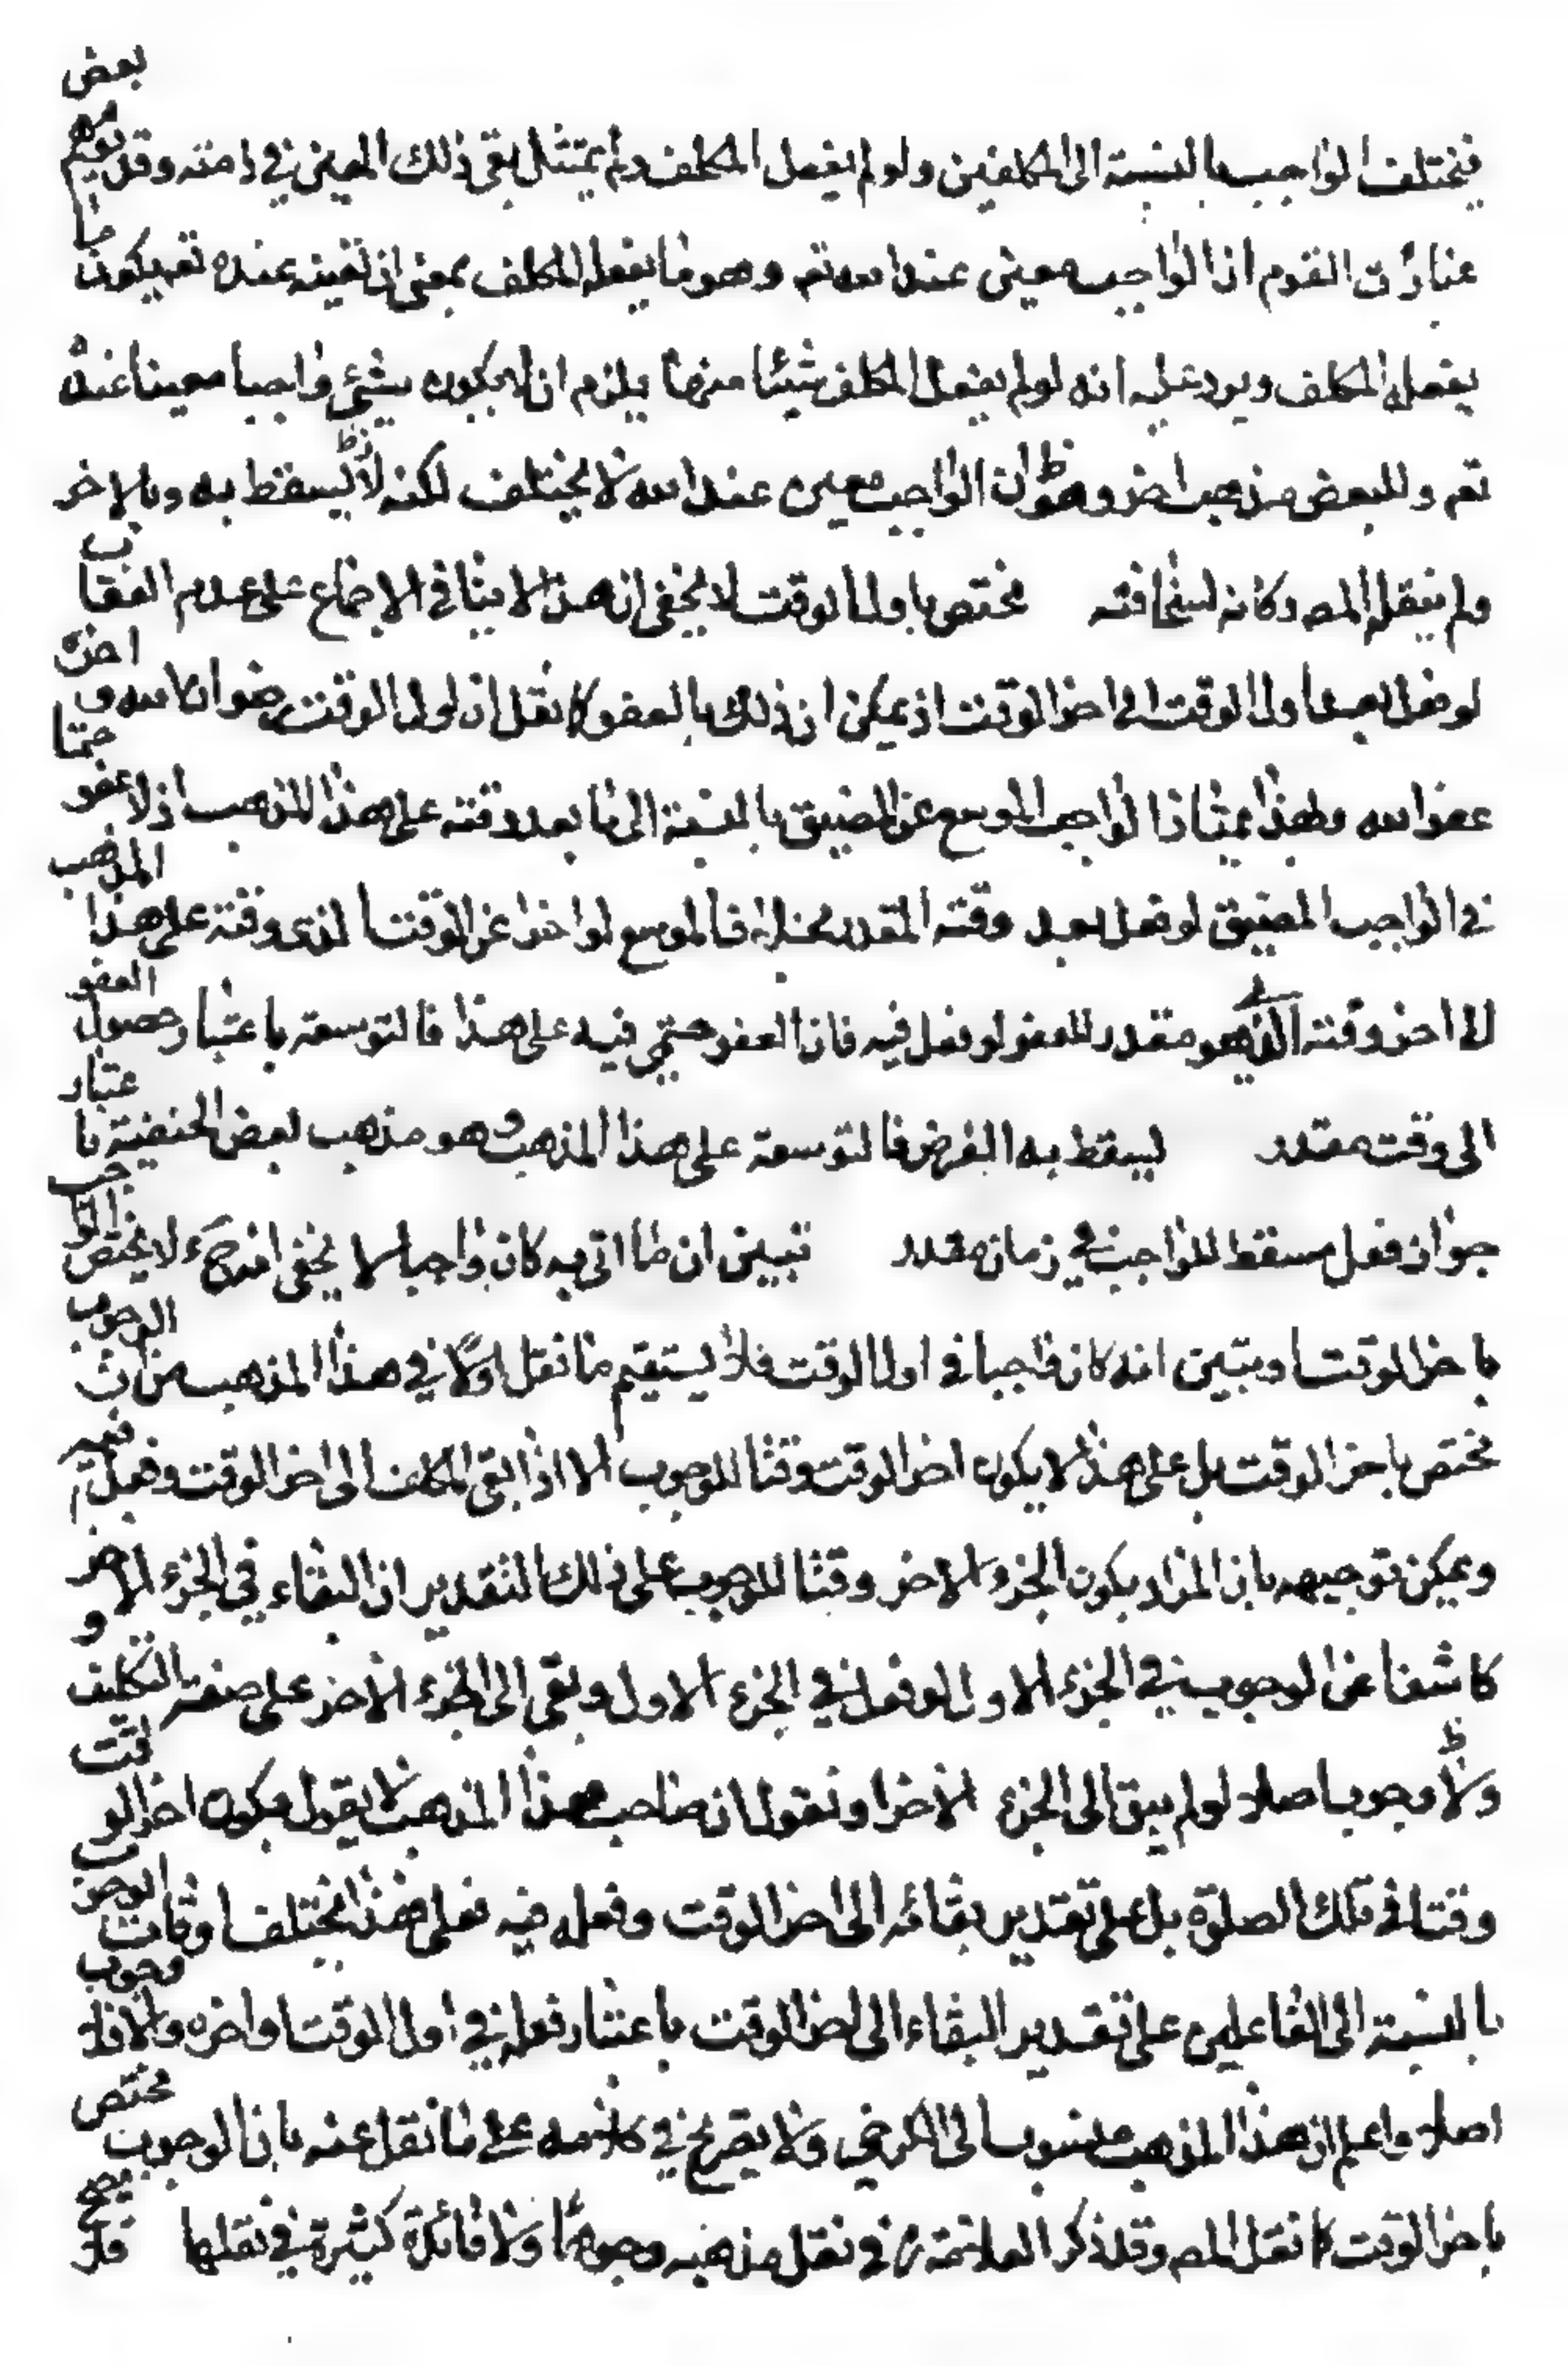 فيختلف الواجب بالنسبة الى المكلفين ولو لم يفعل المكلف ولم يمتثل بقى ذلك المعين في ذمته وقد توهم بعض
عبارات القوم ان الواجب معين عند الله تعم وهو ما يفعله المكلف بمعنى ان تعينه عنده تعم بكون ما
يفعله المكلف ويرد عليه انه لو لم يفعل المكلف شيئا منها يلزم ان لا يكون شيئ واجبا معينا عنده
تعم وللبعض مذهب اخر وهو ان الواجب معين عند الله لا يختلف لكنه يسقط به وبالاخر
ولم ينقله المصـ وكانه لسخافته مختص باول الوقت لا يخفى ان هذا لا ينافي الاجماع على عدم العقاب
لو فعل بعد اول الوقت الى اخر الوقت اذ يمكن ان ذلك بالعفو كما نقل ان اول الوقت رضوان الله و اخره
عفو الله وبهذا يمتاز الواجب الموسع عن المضيق بالنسبة الى ما بعد وقته على هذا المذهب اذ لا عفو حتما
في الواجب المضيق لو فعل بعد وقته المقدر بخلاف الموسع لو اخر عن الوقت الذى وقته على هذا المذهب
الى اخر وقته الذي هو مقدر للعفو لو فعل فيه فان العفو حتمي فيه على هذا فالتوسعة باعتبار حصول العفو
الى وقت مقدر ليسقط به الفرض فالتوسعة على هذا المذهب وهو مذهب بعض الحنفية باعتبار
جواز فعل مسقط للواجب في زمان مقدر تبين ان ما اتى به كان واجبا لا يخفى انه ح لا يختص الواجب
باخر الوقت اذ تبين انه كان واجبا في اول الوقت فلا يستقيم ما نقل اولا في هذا المذهب من ان الوجوب
مختص باخر الوقت بل على هذا لا يكون اخر الوقت وقتا للوجوب الا اذا بقى المكلف الى اخر الوقت وفعل فيه
ويمكن توجيهه بان المراد بكون الجزء الاخر وقتا للوجوب على ذلك التقدير ان البقاء في الجزء الاخر
كاشفا عن الوجوب في الجزء الاول لو فعل في الجزء الاول وبقى الى الجزء الاخر على صفة التكليف و
لا وجوب اصلا لو لم يبق الى الجزء الاخر او نقول ان صاحب هذا المذهب لا يقول بكون اخر الوقت
وقتا في تلك الصلوة بل على تقدير بقائه الى اخر الوقت وفعله فيه فعلى هذا يختلف اوقات الوجوب
بالنسبة الى الفاعلين على تقدير البقاء الى اخر الوقت باعتبار فعله في اول الوقت او اخره والا فلا وجوب
اصلا واعلم ان هذا المذهب منسوب الى الكرخي ولا يصرح في كلامه على ما نقل عنه بان الوجوب مختص
باخر الوقت كما نقل المصـ وقد ذكر العلامة ره في نقل مذهبه وجوها ولا فائدة كثيرة في نقلها